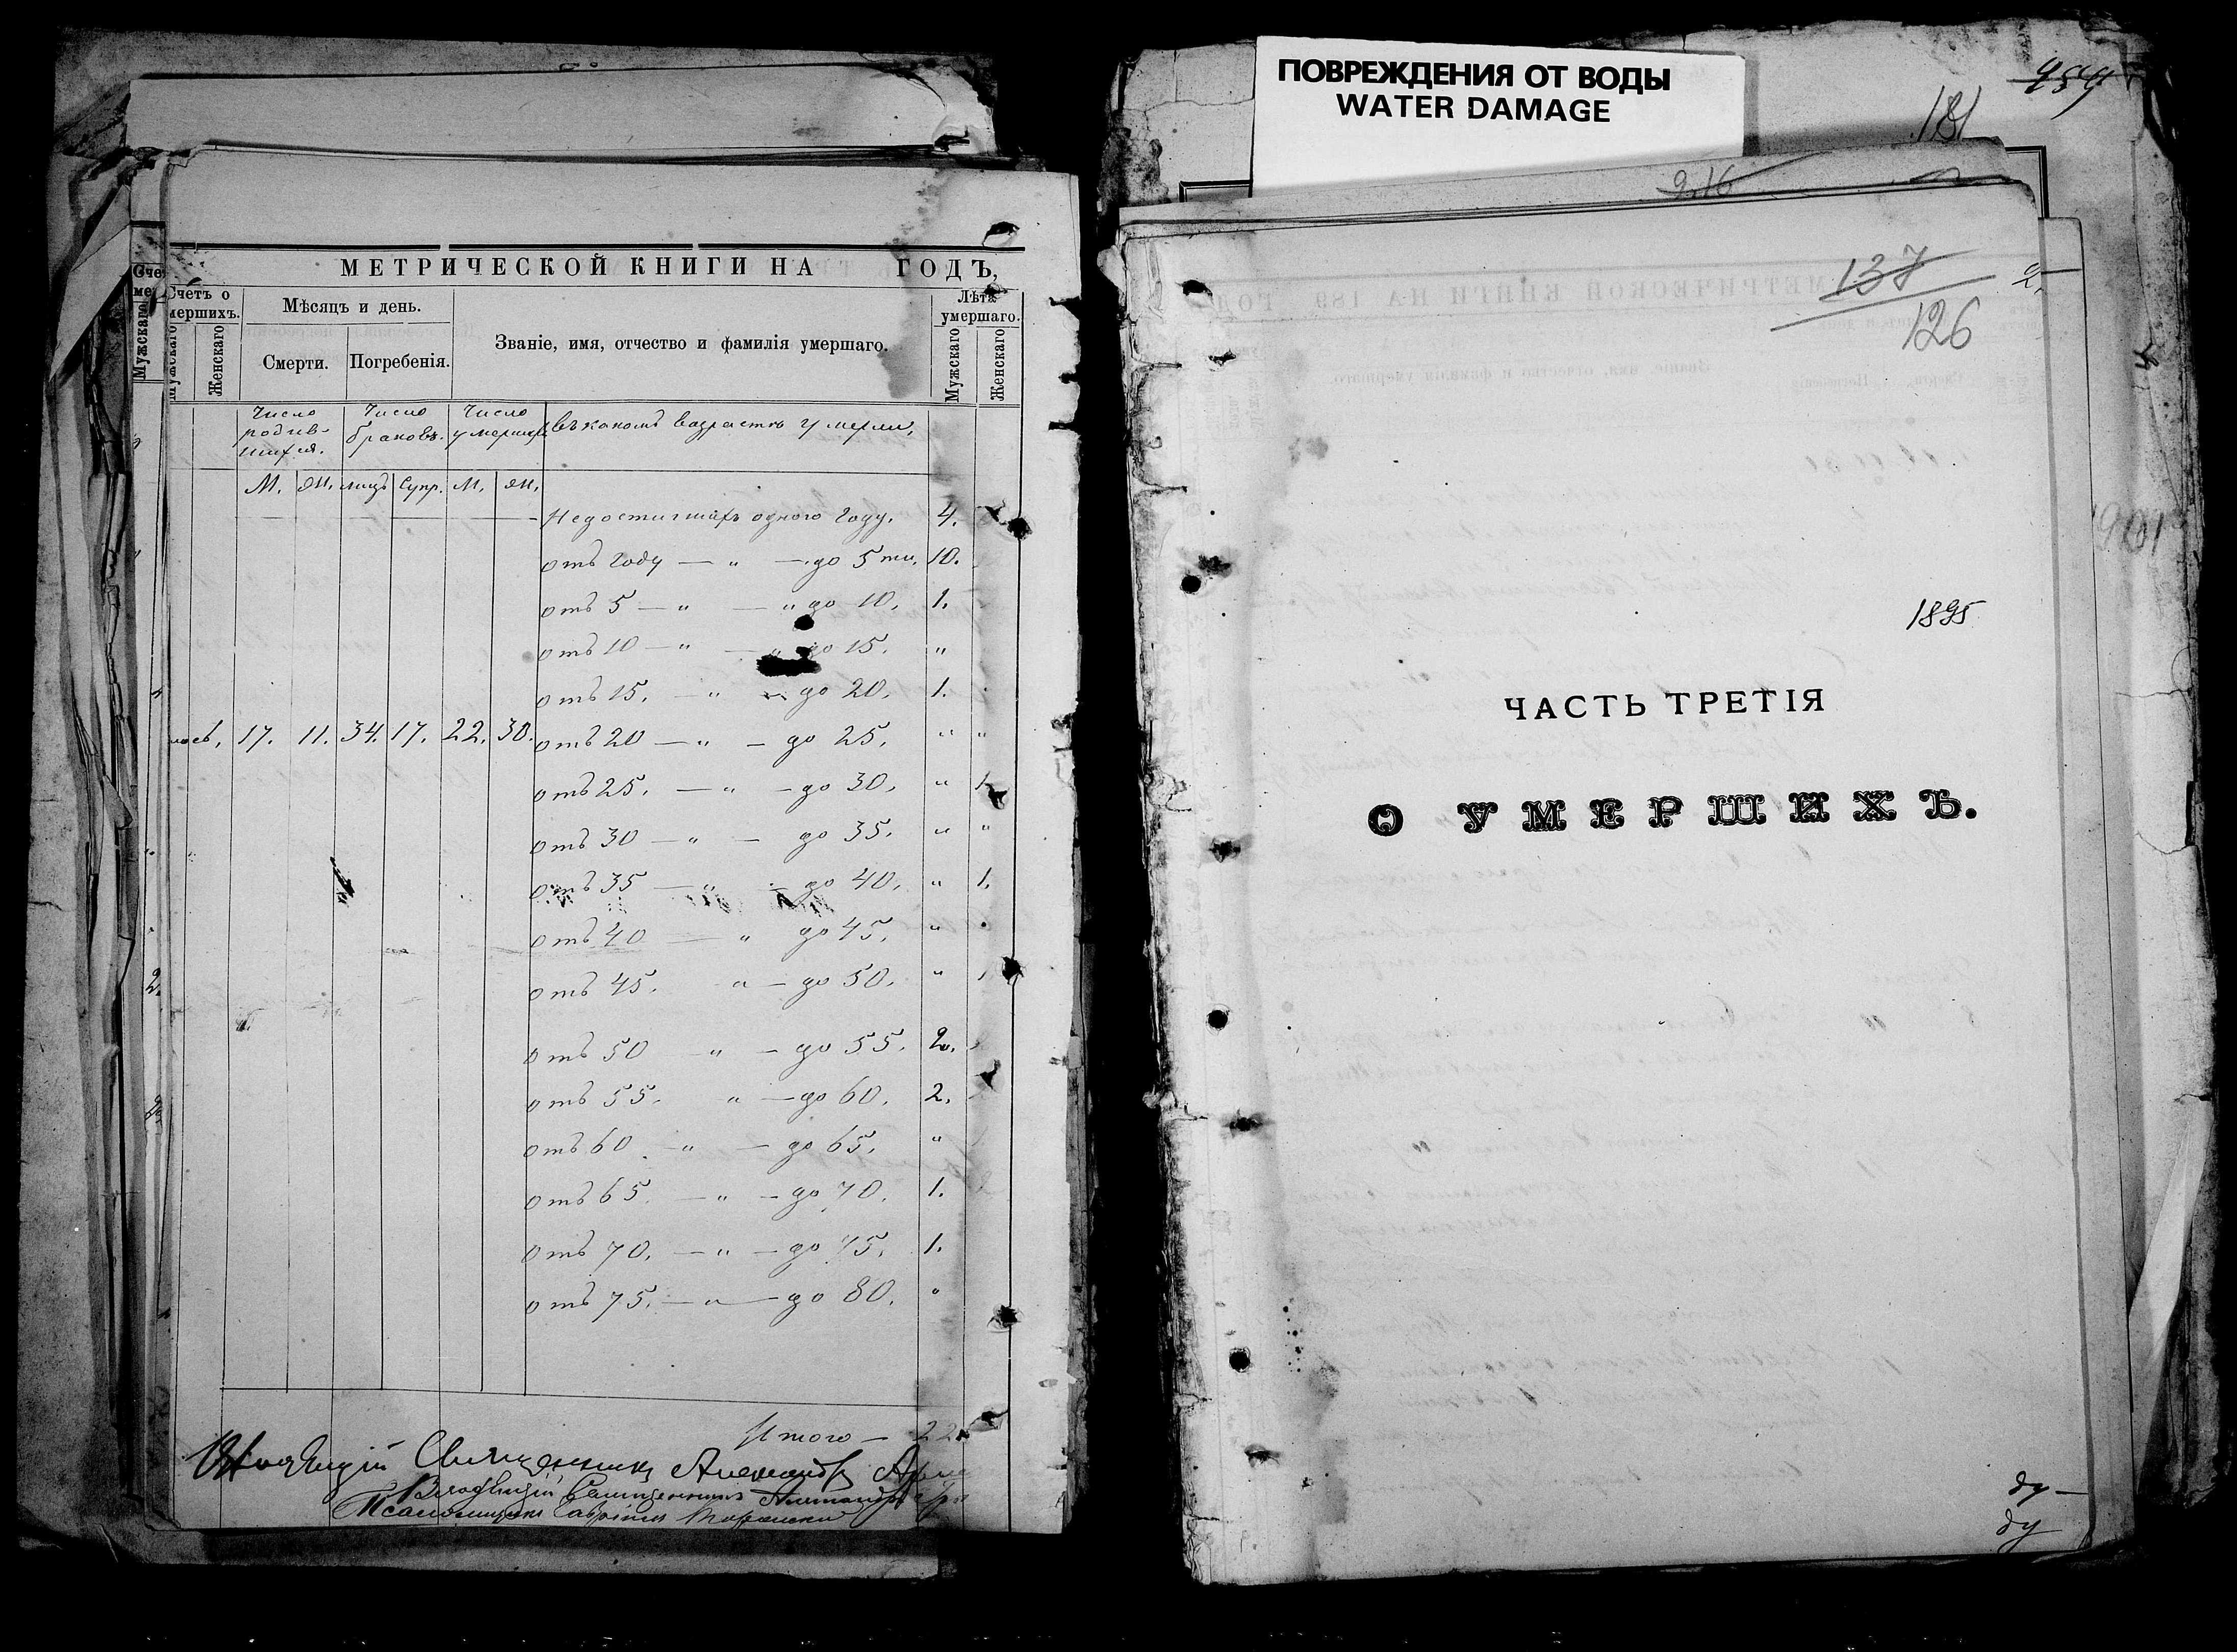 МЕТРИЧЕСКОЙ КНИГИ НА ГОДЪ,
Счетъ о мершихъ.
Мѣсяцъ и день.
Званіе, имя, отчество и фамилія умершаго.
Лѣта умершаго.
Мужскаго
Женскаго
Смерти.
Погребенія.
Мужскаго
Женскаго
Число родив-шихся.
Число браковъ.
Число умерших
въ какомъ возрастѣ умерли,
М. Ж. лицъ Супр. М. Ж.
Недостигших одного году. 4.
отъ году — " — до 5 ти. 10.
отъ 5 — " — " до 10. 1.
отъ 10 — " — " до 15. "
отъ 15. — " — до 20. 1.
17. 11. 34. 17. 22. 30. отъ 20 — " — до 25. " "
отъ 25. — " — до 30. " 1.
отъ 30 — " — до 35. " "
отъ 35 — " — до 40. " 1.
отъ 40 — " до 45. "
отъ 45. " — до 50. "
отъ 50 " — до 55. 2.
отъ 55. " — до 60. 2.
отъ 60 — " — до 65. "
отъ 65. — " — до 70. 1.
отъ 70. — " — до 75. 1.
отъ 75. — " — до 80. "
Итого — 22
Священникъ Александръ
Священникъ Александръ
Псаломщикъ
ПОВРЕЖДЕНИЯ ОТ ВОДЫ
WATER DAMAGE
954
181
216
137
126
1895
ЧАСТЬ ТРЕТІЯ
О УМЕРШИХЪ.